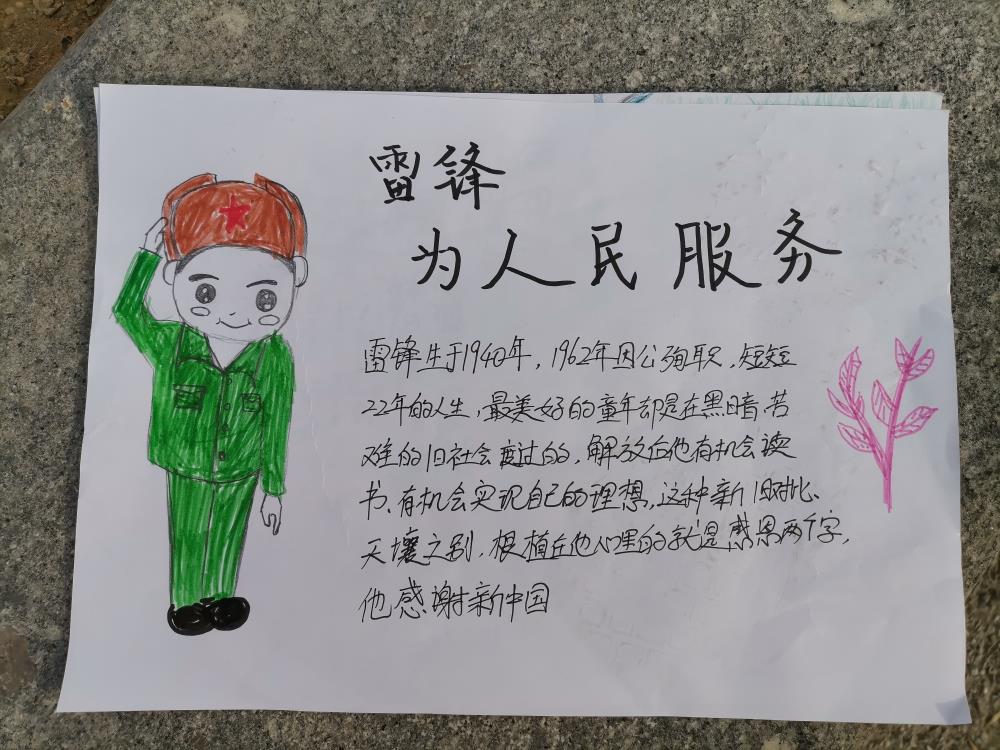 雷锋
为人民服务
雷锋生于1940年，1962年因公殉职，短短
22年的人生，最美好的童年却是在黑暗、苦
难的旧社会度过的，解放后他有机会读
书、有机会实现自己的理想，这种新旧对比、
天壤之别，根植在他心里的就是感恩两个字，
他感谢新中国